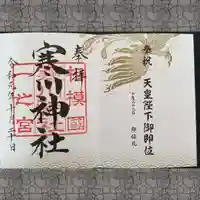 奉祝 天皇陛下御即位
奉拝
寒川神社
相模國
一之宮
令和元年十月二十日